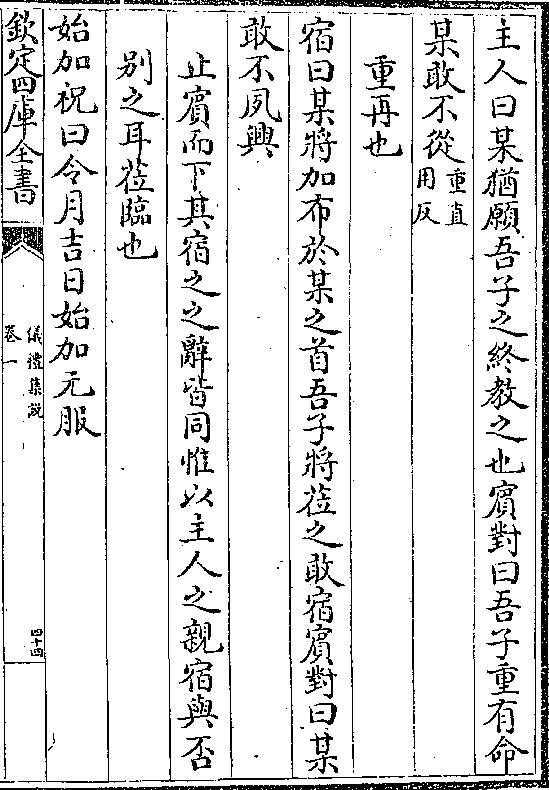 主人曰某猶願吾子之終教之也賔對曰吾子重有命
某敢不從重直
用反
重再也
宿曰某將加布於某之首吾子將莅之敢宿賔對曰某
敢不夙興
止賔而下其宿之之辭皆同惟以主人之親宿與否
别之耳莅臨也
始加祝曰令月吉日始加元服
欽定四庫全書
儀禮集説
卷一
四十四